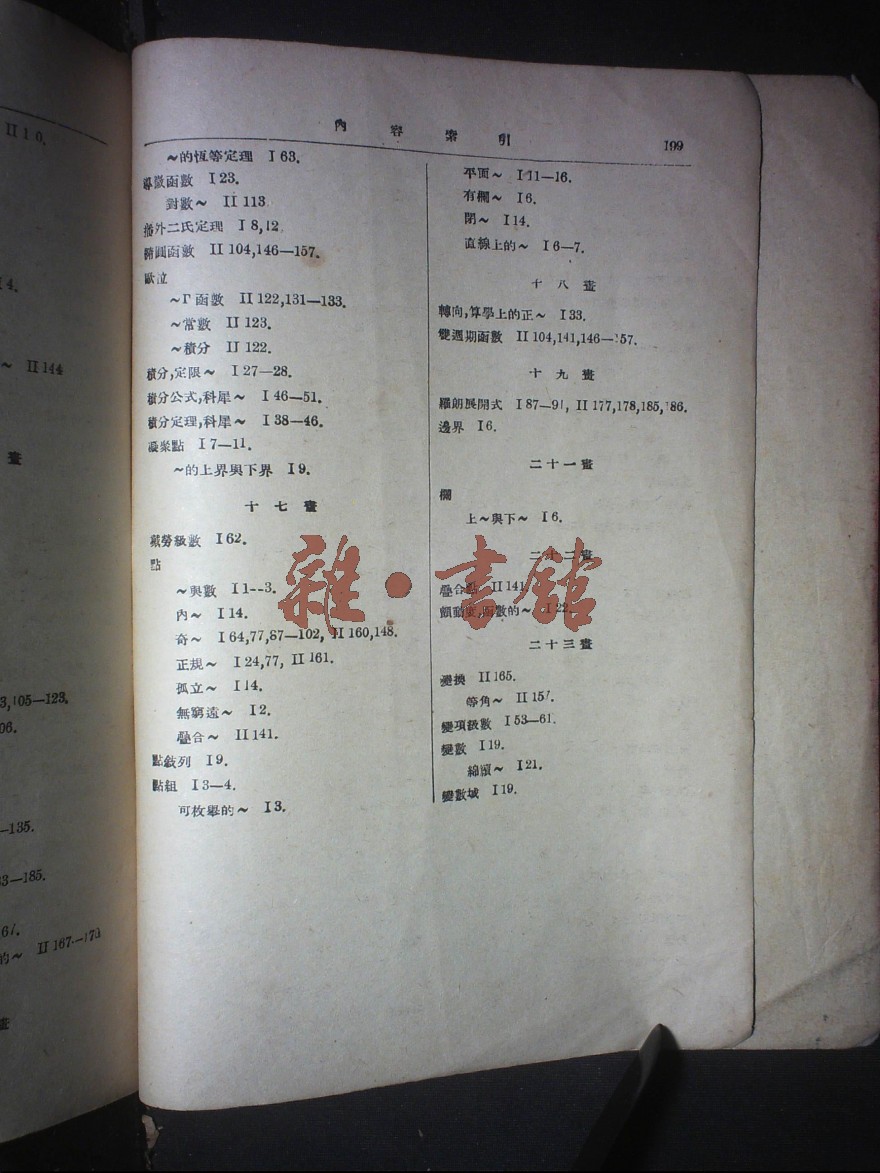 內容索引 199
～的恆等定理 I 63.
導微函數 I 23.
對數～ II 113
播外二氏定理 I 8,12
橢圓函數 II 104,146—157.
歐泣
～Γ函數 II 122,131—133.
～常數 II 123.
～積分 II 122.
積分,定限～ I 27—28.
積分公式,科犀～ I 46—51.
積分定理,科犀～ I 38—46.
凝聚點 I 7—11.
～的上界與下界 I 9.
十七畫
戴勞級數 I 62.
點
～與數 I 1--3.
內～ I 14.
奇～ I 64,77,87—102, II 160,148.
正規～ I 24,77, II 161.
孤立～ I 14.
無窮遠～ I 2.
疊合～ II 141.
點敍列 I 9.
點組 I 3—4.
可枚舉的～ I 3.
平面～ I 11—16.
有欄～ I 6.
閉～ I 14.
直線上的～ I 6—7.
十八畫
轉向,算學上的正～ I 33.
雙週期函數 II 104,141,146—157.
十九畫
羅朗展開式 I 87—91, II 177,178,185,186.
邊界 I 6.
二十一畫
欄
上～與下～ I 6.
二十二畫
疊合點 II 141
顫動,函數的～ I 22.
二十三畫
變換 II 165.
等角～ II 157.
變項級數 I 53—61.
變數 I 19.
綿瀆～ I 21.
變數域 I 19.
雜·書館
II 10.
14.
～ II 144
畫
3,105—123.
06.
—135.
33—185.
67.
的～ II 167—170
畫